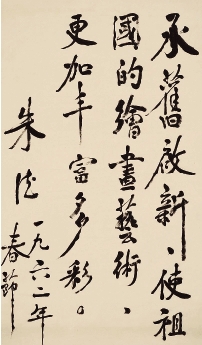 承舊啟新、使祖
國的繪畫藝術、
更加丰富多彩。
朱德
一九六二年
春節